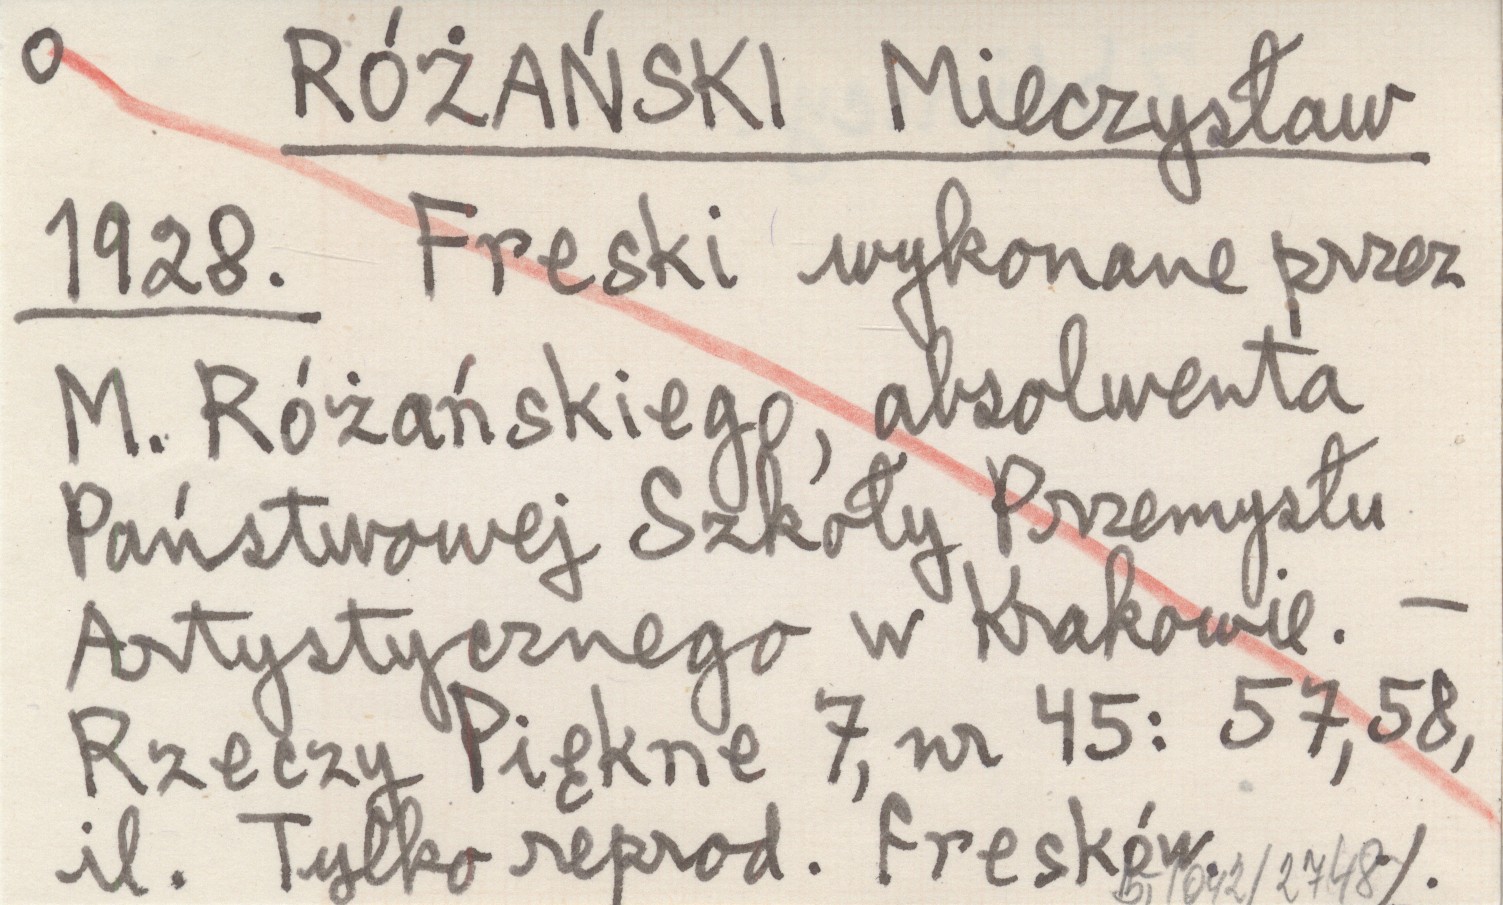 o RÓŻAŃSKI Mieczysław
1928. Freski wykonane przez
M. Różańskiego, absolwenta
Państwowej Szkoły Przemysłu
Artystycznego w Krakowie. —
Rzeczy Piękne 7, nr 45: 57, 58,
il. Tylko reprod. fresków.